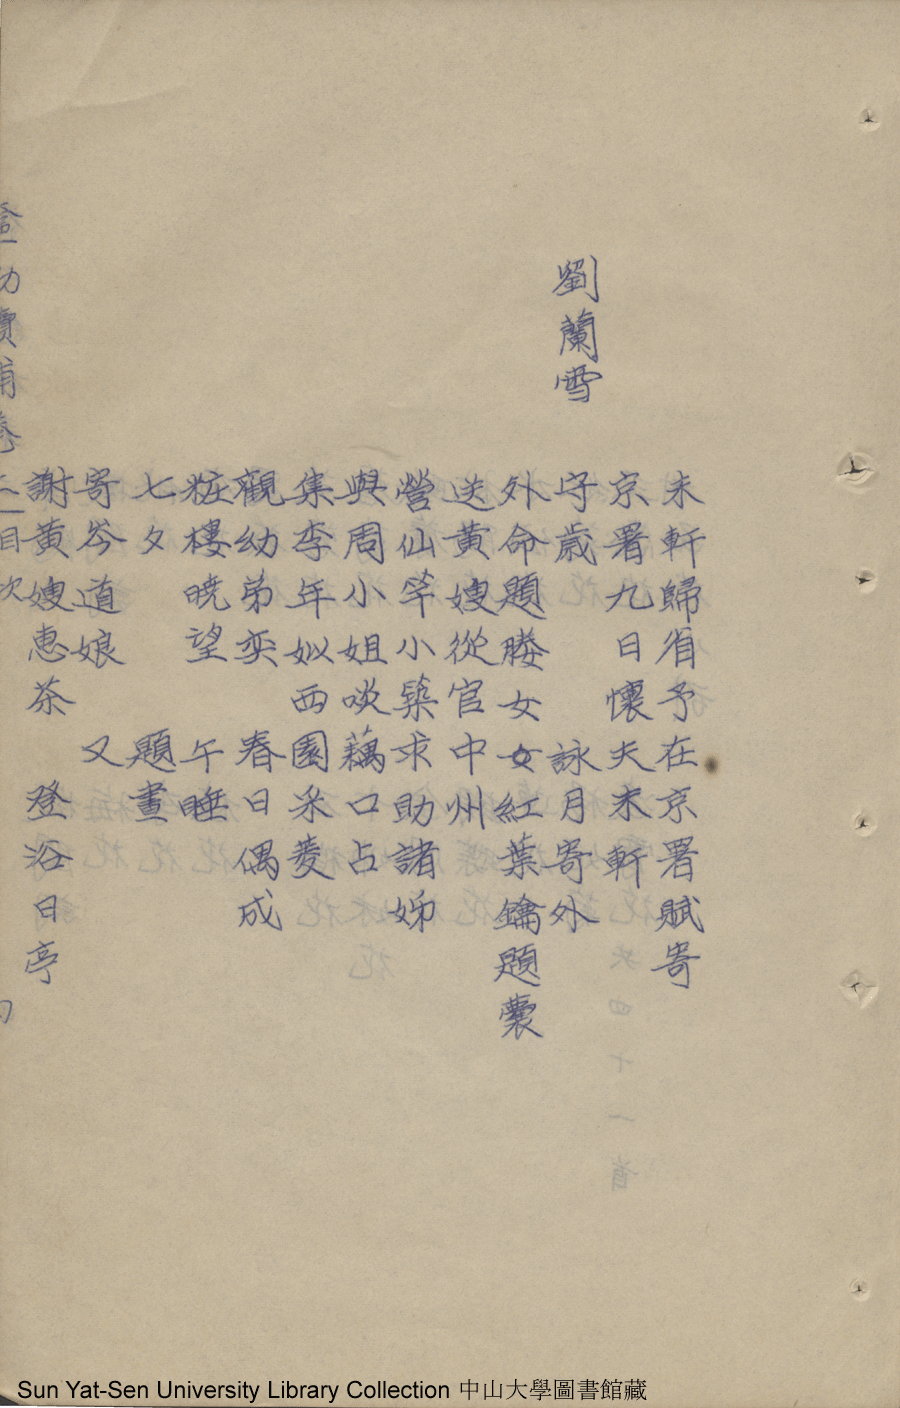 劉蘭雪
未軒歸省予在京署賦寄
京署九日懷夫未軒
守歲 詠月寄外
外命題媵女女紅葉鑰題囊
送黃嫂從官中州
營仙小築求助諸姊
與周小姐啖藕口占
集李年姒西園采菱
觀幼弟奕 春日偶成
粧樓曉望 午睡
七夕 題畫
寄岑道娘 又
謝黃嫂惠茶 登浴日亭
卷二目次
Sun Yat-Sen University Library Collection 中山大學圖書館藏